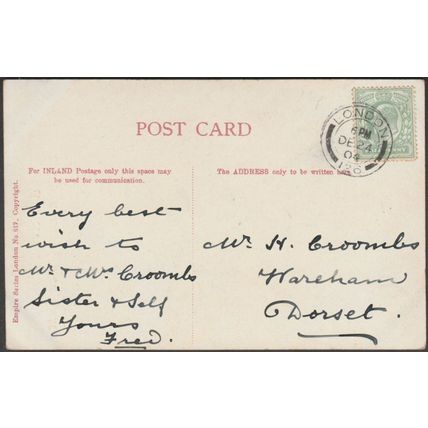 POST CARD
LONDON
6 PM
DE 24
04
126
For INLAND Postage only this space may
be used for communication.
The ADDRESS only to be written here
Every best
wish to
Mr & Mrs Croombs
Sister & Self
Yours
Fred.
Mr H. Croombs
Wareham
Dorset.
Empire Series London No. 617. Copyright.